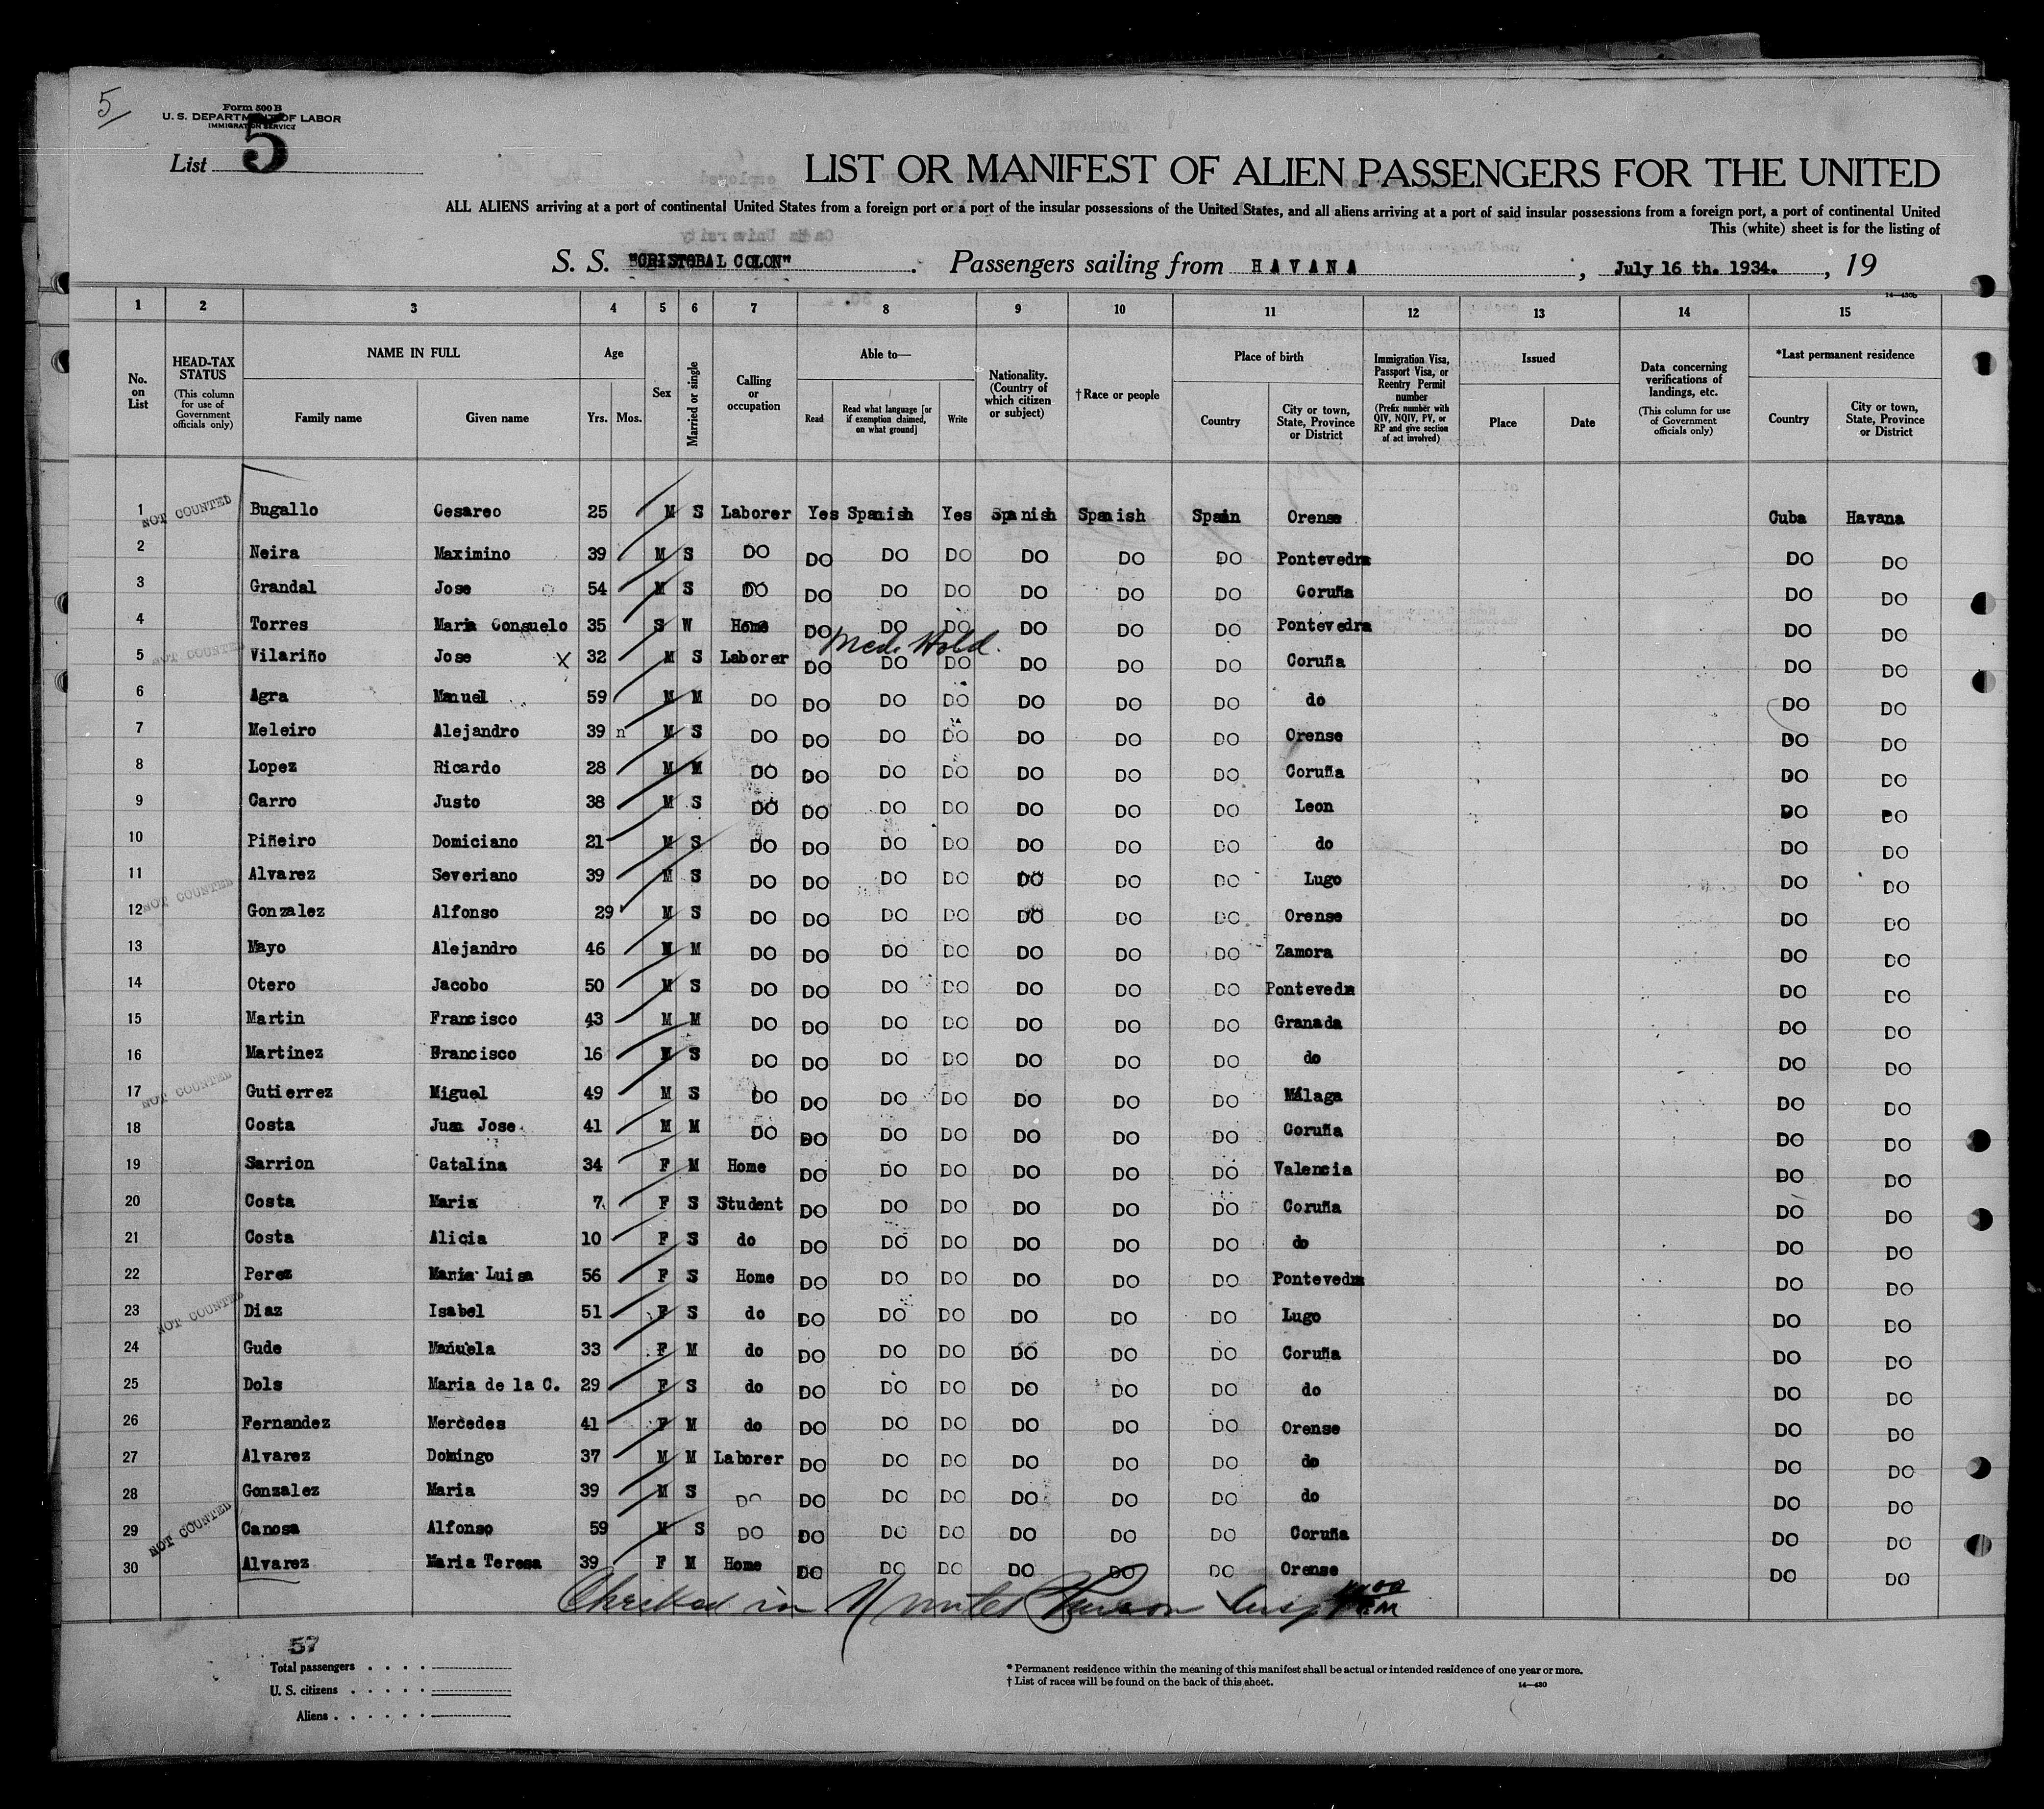 5
Form 500 B
U. S. DEPARTMENT OF LABOR
IMMIGRATION SERVICE
List 5
LIST OR MANIFEST OF ALIEN PASSENGERS FOR THE UNITED
ALL ALIENS arriving at a port of continental United States from a foreign port or a port of the insular possessions of the United States, and all aliens arriving at a port of said insular possessions from a foreign port, a port of continental United
This (white) sheet is for the listing of
S. S. "CRISTOBAL COLON" . Passengers sailing from HAVANA , July 16 th. 1934. , 19
14—430b
1 2 3 4 5 6 7 8 9 10 11 12 13 14 15
No. on List
HEAD-TAX STATUS (This column for use of Government officials only)
NAME IN FULL
Family name Given name
Age
Yrs. Mos.
Sex
Married or single
Calling or occupation
Able to—
Read
Read what language [or if exemption claimed, on what ground]
Write
Nationality. (Country of which citizen or subject)
†Race or people
Place of birth
Country
City or town, State, Province or District
Immigration Visa, Passport Visa, or Reentry Permit number (Prefix number with QIV, NQIV, PV, or RP and give section of act involved)
Issued
Place Date
Data concerning verifications of landings, etc. (This column for use of Government officials only)
*Last permanent residence
Country
City or town, State, Province or District
1 NOT COUNTED Bugallo Cesareo 25 M S Laborer Yes Spanish Yes Spanish Spanish Spain Orense Cuba Havana
2 Neira Maximino 39 M S DO DO DO DO DO DO DO Pontevedra DO DO
3 Grandal Jose 54 M S DO DO DO DO DO DO DO Coruña DO DO
4 Torres Maria Consuelo 35 S W Home DO DO DO DO DO DO Pontevedra DO DO
Med. Hold.
5 NOT COUNTED Vilariño Jose X 32 M S Laborer DO DO DO DO DO DO Coruña DO DO
6 Agra Manuel 59 M M DO DO DO DO DO DO DO do DO DO
7 Meleiro Alejandro 39 n M S DO DO DO DO DO DO DO Orense DO DO
8 Lopez Ricardo 28 M M DO DO DO DO DO DO DO Coruña DO DO
9 Carro Justo 38 M S DO DO DO DO DO DO DO Leon DO DO
10 Piñeiro Domiciano 21 M S DO DO DO DO DO DO DO do DO DO
11 Alvarez Severiano 39 M S DO DO DO DO DO DO DO Lugo DO DO
12 NOT COUNTED Gonzalez Alfonso 29 M S DO DO DO DO DO DO DO Orense DO DO
13 Mayo Alejandro 46 M M DO DO DO DO DO DO DO Zamora DO DO
14 Otero Jacobo 50 M S DO DO DO DO DO DO DO Pontevedra DO DO
15 Martin Francisco 43 M M DO DO DO DO DO DO DO Granada DO DO
16 Martinez Francisco 16 M S DO DO DO DO DO DO DO do DO DO
17 NOT COUNTED Gutierrez Miguel 49 M S DO DO DO DO DO DO DO Málaga DO DO
18 Costa Juan Jose 41 M M DO DO DO DO DO DO DO Coruña DO DO
19 Sarrion Catalina 34 F M Home DO DO DO DO DO DO Valencia DO DO
20 Costa Maria 7 F S Student DO DO DO DO DO DO Coruña DO DO
21 Costa Alicia 10 F S do DO DO DO DO DO DO do DO DO
22 Perez Maria Luisa 56 F S Home DO DO DO DO DO DO Pontevedra DO DO
23 NOT COUNTED Diaz Isabel 51 F S do DO DO DO DO DO DO Lugo DO DO
24 Gude Manuela 33 F M do DO DO DO DO DO DO Coruña DO DO
25 Dols Maria de la C. 29 F S do DO DO DO DO DO DO do DO DO
26 Fernandez Mercedes 41 F M do DO DO DO DO DO DO Orense DO DO
27 Alvarez Domingo 37 M M Laborer DO DO DO DO DO DO do DO DO
28 Gonzalez Maria 39 M S DO DO DO DO DO DO DO do DO DO
29 NOT COUNTED Canosa Alfonso 59 M S DO DO DO DO DO DO DO Coruña DO DO
30 Alvarez Maria Teresa 39 F M Home DO DO DO DO DO DO Orense DO DO
Checked in
57
Total passengers . . . .
U. S. citizens . . . . .
Aliens . . . . . .
* Permanent residence within the meaning of this manifest shall be actual or intended residence of one year or more.
† List of races will be found on the back of this sheet.
14—430